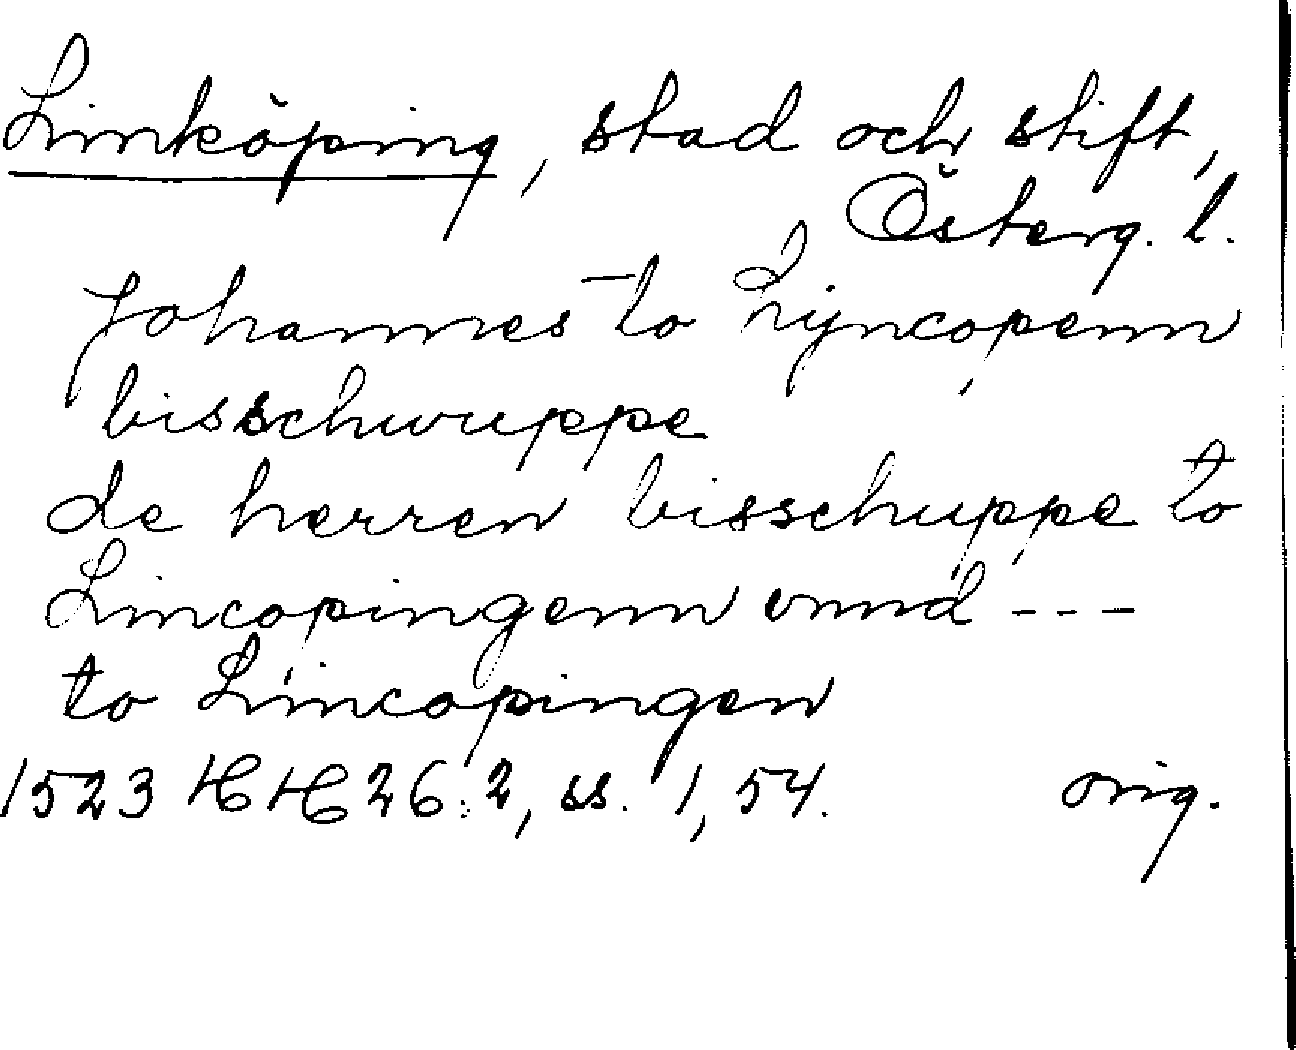 Linköping, stad och stift,
Österg. l.
Johannes to Lijncopenn
bisschwuppe
de herren bisschuppe to
Lincopingenn vnnd ---
to Lincopingen
1523 HH 26:2, ss. 1, 54. orig.